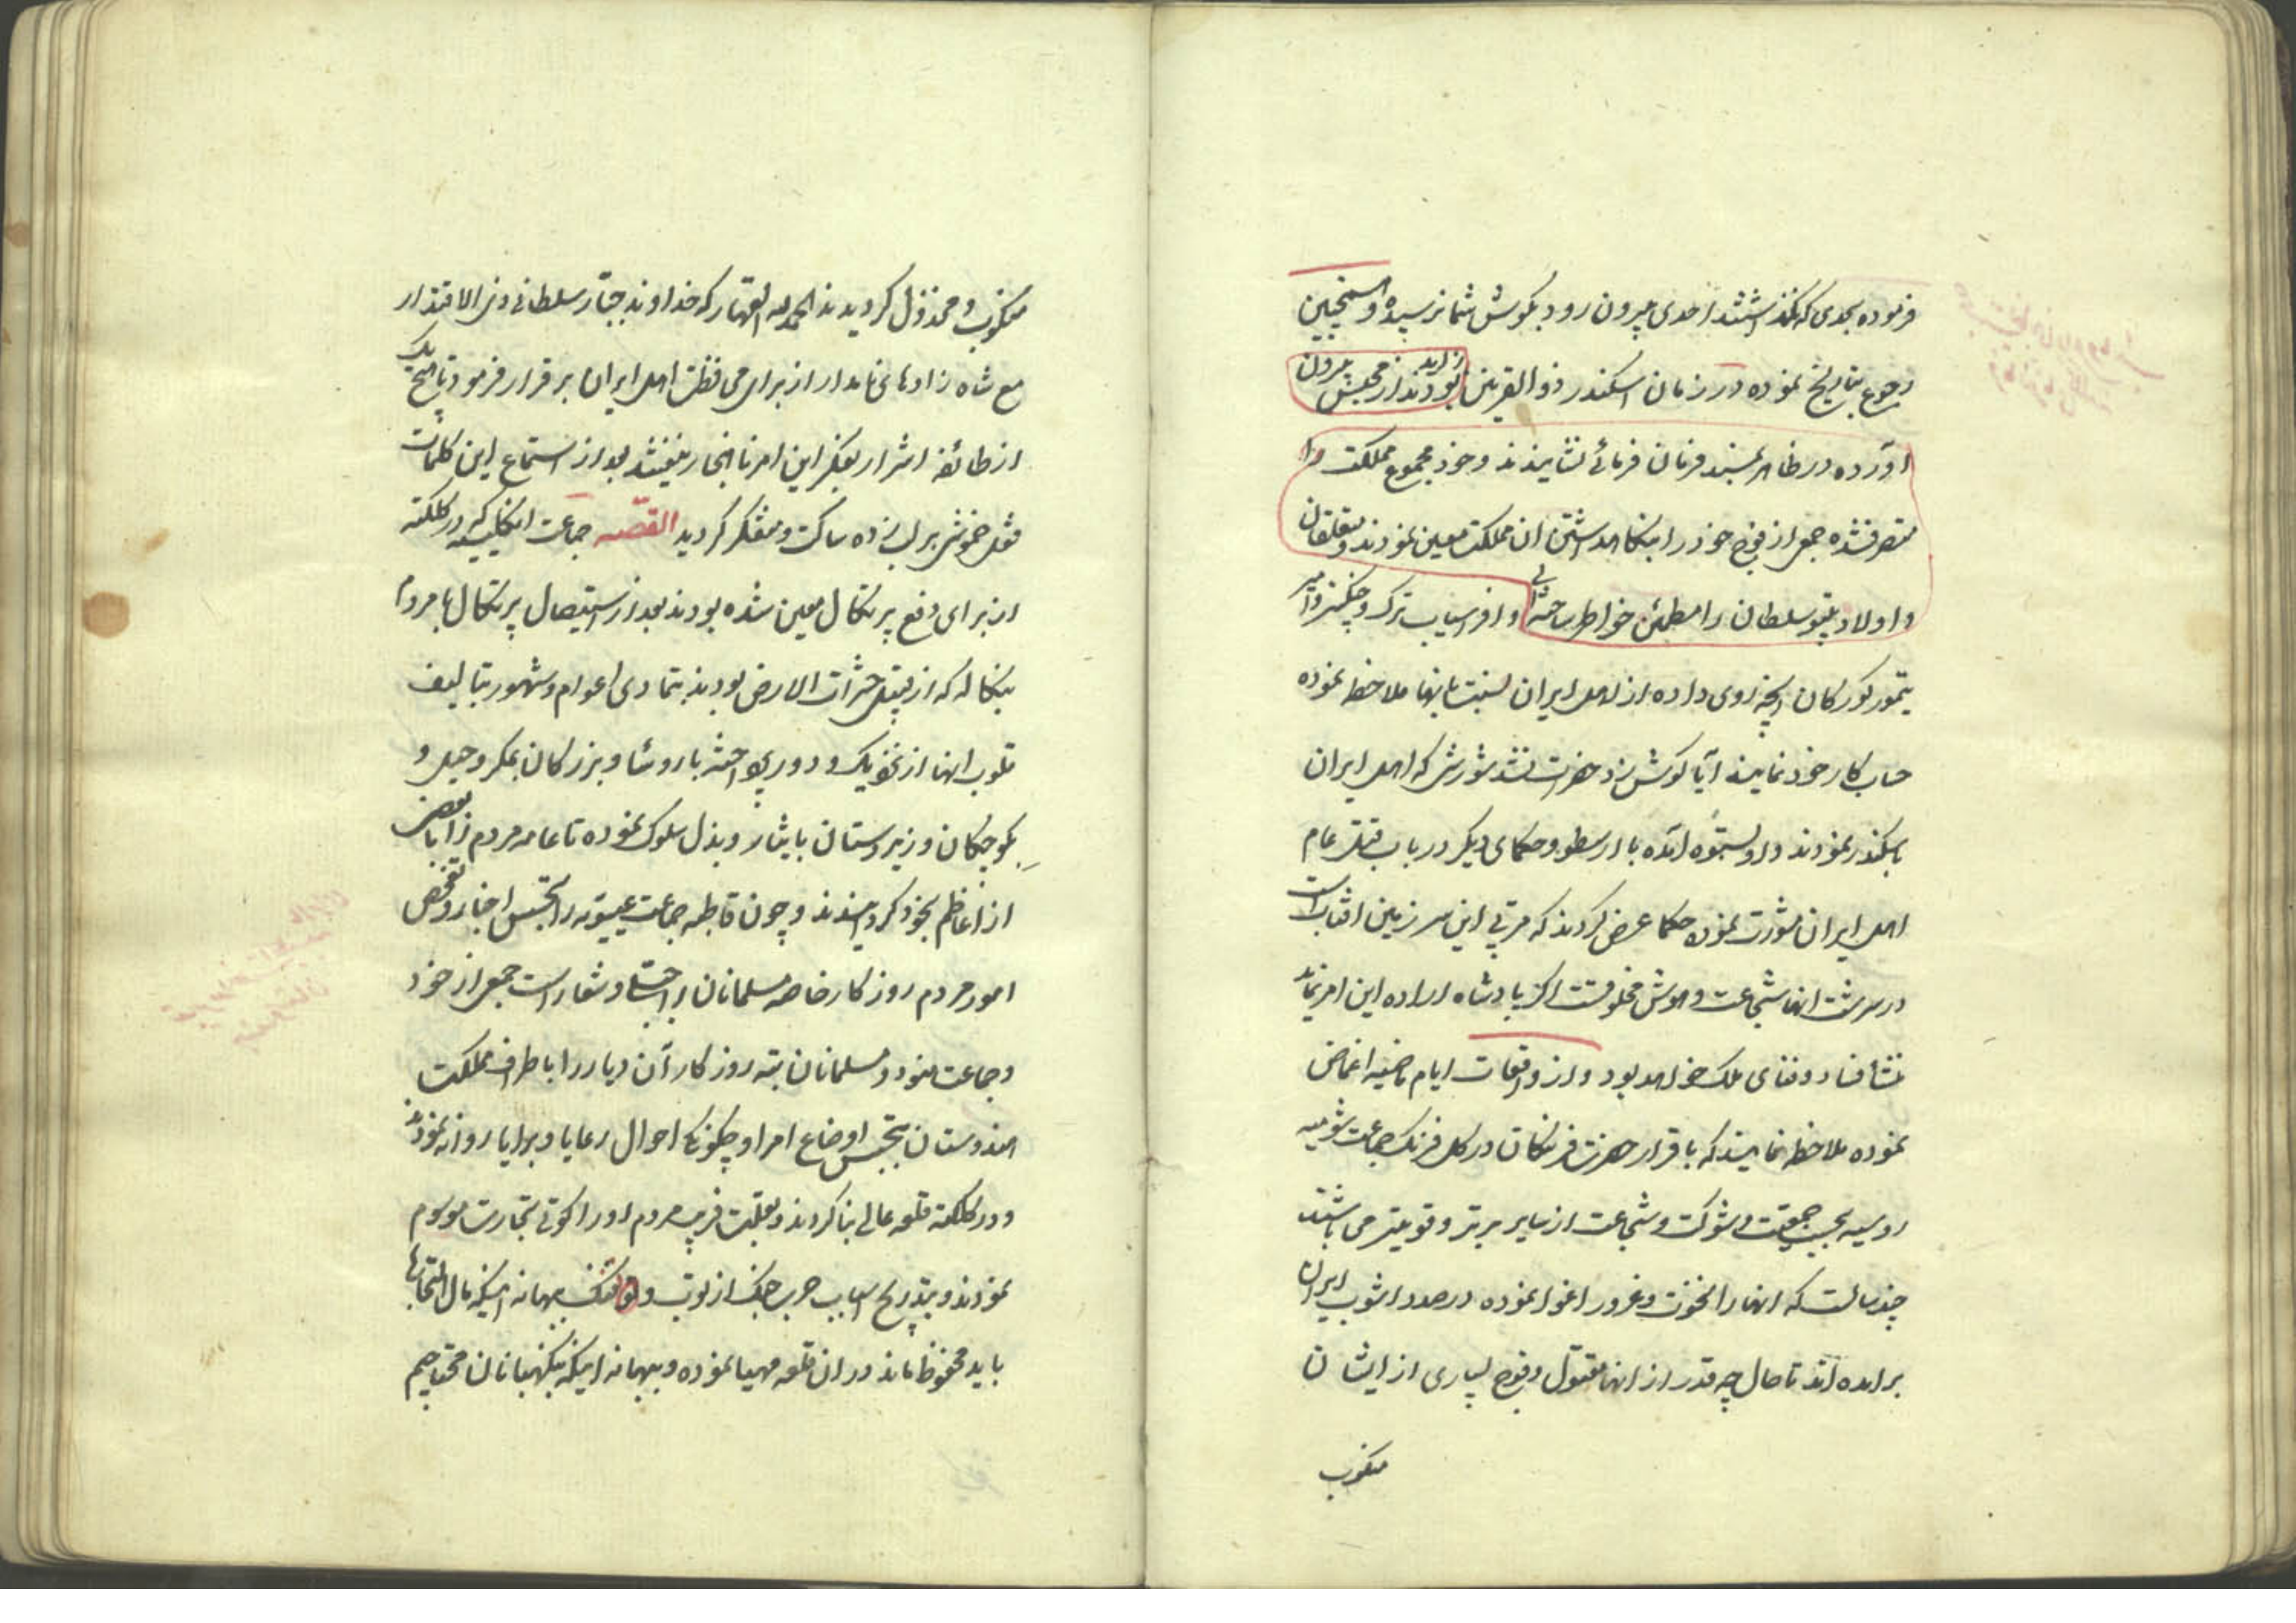 فرموده بحدی که نگذاشتند احدی بیرون رود بگوش شما نرسیده و همچنین
رجوع بتاریخ نموده در زمان اسکندر ذوالقرنین
زاید بودند از محبس بیرون
اورده در ظاهر بمسند فرمان فرمائی نشانیدند و خود مجموع مملکت را
متصرف شده جمعی از فوج خود را بنگاهداشتن ان مملکت معین نمودند و متعلقان
و اولاد تیپو سلطان را مطمئن خواطر ساخته و افراسیاب ترک و چنگیز و امیر
تیمور کورکان انچه روی داده از اهل ایران نسبت بانها ملاحظه نموده
حساب کار خود نمایند آیا گوش زد حضرات نشد شورش که اهل ایران
باسکندر نمودند و او بستوه آمده با ارسطو و حکمای دیگر در باب قتل عام
اهل ایران مشورت نموده حکما عرض کردند که مربی این سرزمین افتاب است
در سرشت انها شجاعت و هوش مخلوقست اگر پادشاه اراده این امر نماید
منشأ فساد و فنای ملک خواهد بود و از واقعات ایام ماضیه اغماض
نموده ملاحظه نمایند که باقرار حضرت فرنگان در کل فرنگ جماعت شومیه
روسیه بحسب جمعیت و شوکت و شجاعت از سایر برتر و قویتر می باشند
چند سالست که انها را نخوت و غرور اغوا نموده در صدد اشوب ایران
برامده اند تا حال چه قدر از انها مقتول و فوج بسیاری از ایشان
منکوب
منکوب و مخذول کردیدند الحمد لله القهار که خداوند جبار سلطانی ذی الاقتدار
مع شاه زادهای نامدار از برای محافظت اهل ایران برقرار فرمود تا هیچ یک
از طائفه اشرار بفکر این امر ناهنجار نیفتند بعد از استماع این کلمات
قفل خموشی بر لب زده ساکت و متفکر کردید القصه جماعت انکلیسیه که در کلکته
از برای دفع پرتکال معین شده بودند بعد از استیصال پرتکال با مردم
بنکاله که از قبیل حشرات الارض بودند بتمادی اعوام و شهور بتالیف
قلوب انها از نزدیک و دور پرداخته با روسا و بزرکان بمکر و حیل و
بکوچکان و زیردستان بایثار و بذل سلوک نموده تا عامه مردم را با بعضی
از اعاظم بخود کروانیدند و چون قاطبه جماعت عیسویه را تجسس اخبار و تفحص
امور مردم روزکار خاصه مسلمانان را شعار است جمعی از خود
و جماعت هنود و مسلمانان تبه روزکار آن دیار را باطراف مملکت
هندوستان بتجسس اوضاع امرا و چکونکی احوال رعایا و برایا روانه نمودند
و در کلکته قلعه عالی بنا کردند و بعلت فریب مردم او را کوتی تجارت موسوم
نمودند و بتدریج اسباب حرب و جنک از توپ و تفنک ببهانه اینکه مال التجارتها
باید محفوظ ماند در ان قلعه مهیا نموده و ببهانه اینکه بنکهبانان محتاجیم